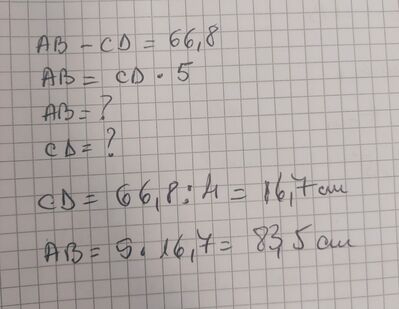 AB - CD = 66,8
AB = CD · 5
AB = ?
CD = ?
CD = 66,8 : 4 = 16,7 cm
AB = 5 · 16,7 = 83,5 cm